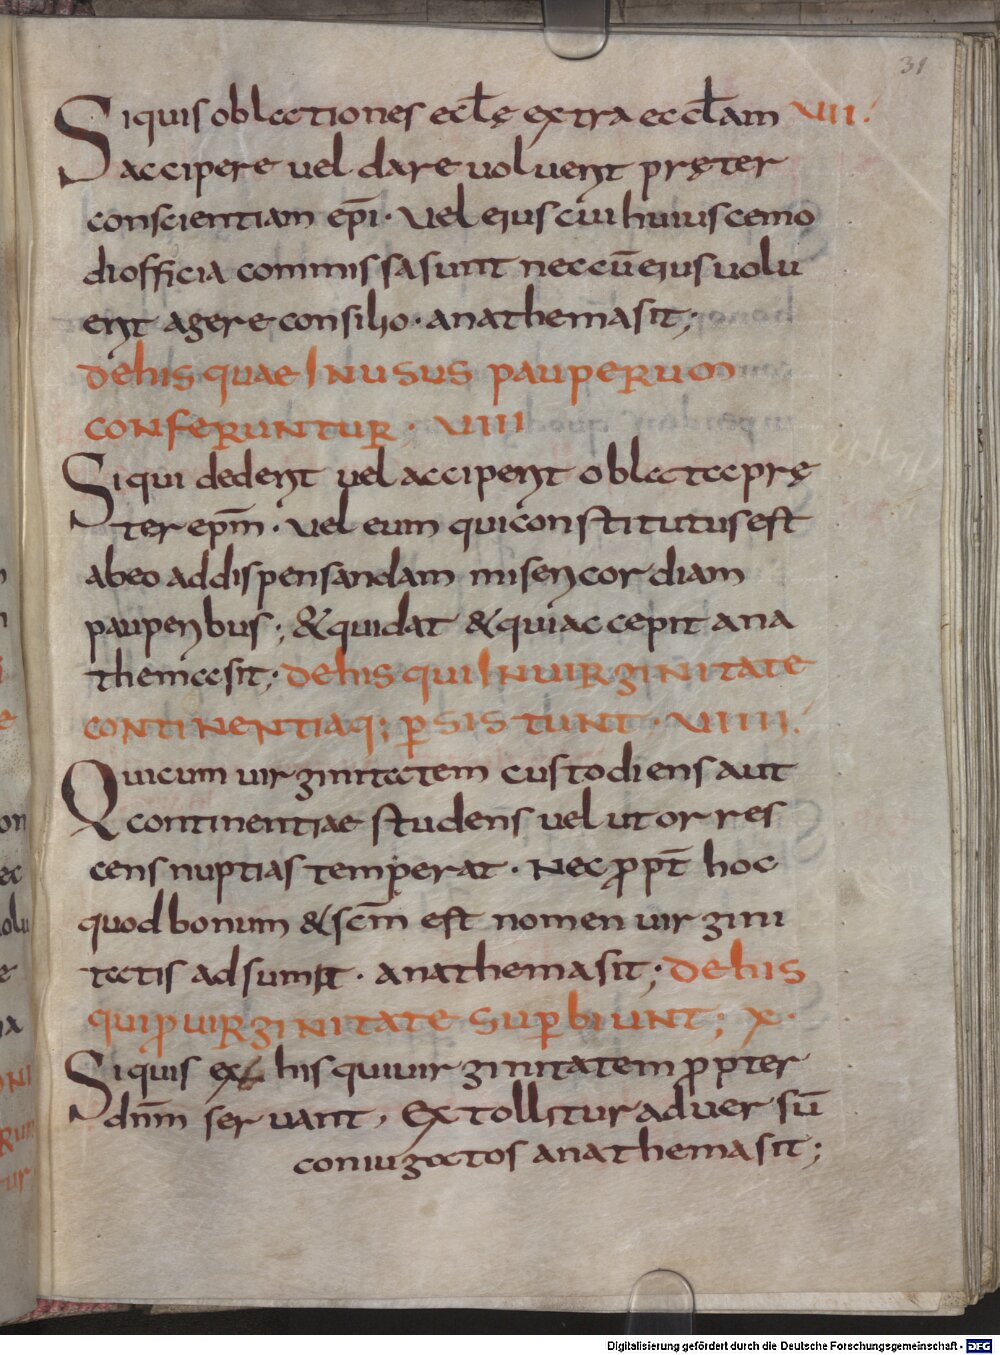 31
Siquis oblectiones eccłę extra eccłam VII.
accipere vel dare uoluerit pręter
conscientiam epī. vel eius cui huiuscemo
di officia commissa sunt nec cū eius uolu
erit agere consilio. anathema sit;
De his quae In usus pauperum
conferuntur. VIII
Si qui dederit vel acciperit oblectaprę
ter epm̄. vel eum qui constitutus est
abeo addispensandam misericordiam
pauperibus; & qui dat & qui accepit ana
thema sit; De his qui In uirginitate
continentiaq; ꝑsistunt. VIIII.
Quicum uirginitatem custodiens aut
continentiae studens vel ut orres
cens nuptias temperat. Nec ꝓpt̄ hoc
quod bonum & scm̄ est nomen uirgini
tatis adsumit. anathema sit; De his
qui ꝓ uirginitate suꝑbiunt; X.
Siquis ex his qui uirginitatem ꝓpter
dnm̄ seruant, extollitur aduersū
coniugatos anathema sit;
Digitalisierung gefördert durch die Deutsche Forschungsgemeinschaft - DFG